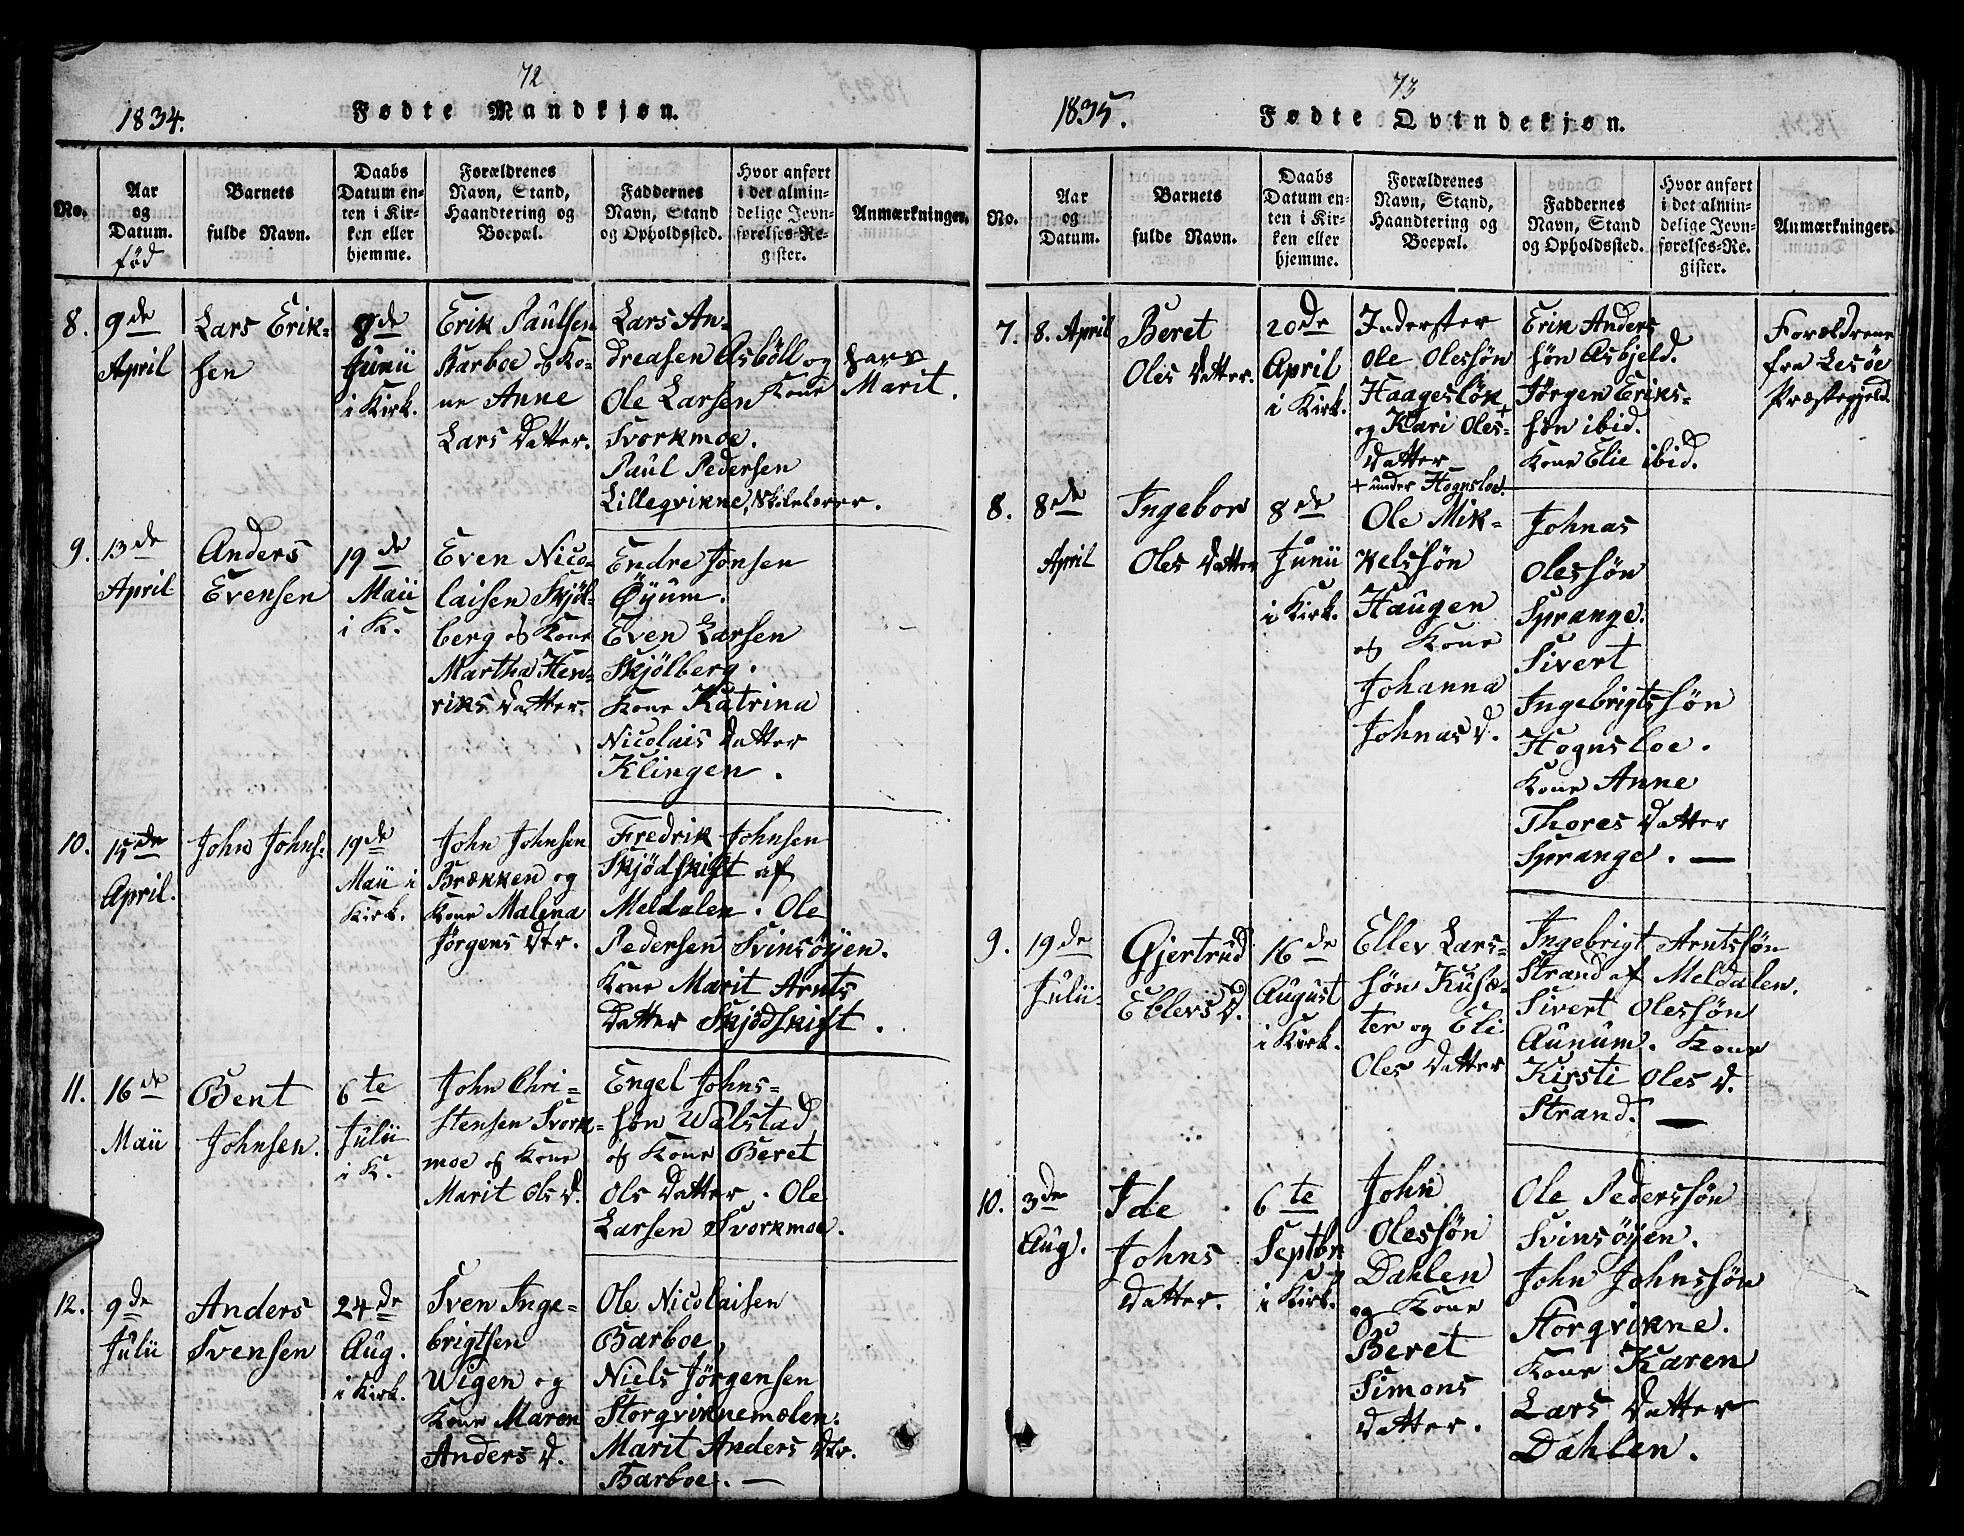 72
1834.
Fødte Mandkjøn.
No.
Aar
og
Datum.
fød
Barnets
fulde Navn.
Daabs
Datum en-
ten i Kir-
ken eller
hjemme.
Forældrenes
Navn, Stand,
Haandtering og
Boepæl.
Faddernes
Navn, Stand
og Opholdssted.
Hvor anført
i det almin-
delige Jevn-
førelses-Re-
gister.
Anmærkninger.
8.
9de
April
Lars Erik-
sen
8de
Junii
i Kirk.
Erik Paulsen
Karboe og Ko-
ne Anne
Lars Datter.
Lars An-
dreasen Asböll og
Kone Marit.
Ole Larsen
Svorkmoe.
Paul Pedersen
Lilleqvikne, Skolelærer.
9.
13de
April
Anders
Evensen
19de
Maii
i K.
Even Nico-
laisen Skjöl-
berg og Kone
Martha Hen-
riks Datter.
Endre Jonsen
Öyum.
Even Larsen
Skjölberg.
Kone Katrina
Nicolais Datter
Klingen.
10.
15de
April.
John Johns.
19de
Maii i
Kirk.
John Johnsen
Brækken og
Kone Malena
Jörgens Dtr.
Fredrik Johnsen
Skjödskift af
Meldalen. Ole
Pedersen Svinsöyen.
Kone Marit Arnts
Datter Skjödskift.
11.
16de
Maii
Bent
Johnsen.
6te
Julii
i K.
John Chri-
stensen Svork-
moe og Kone
Marit Ols D.
Engel Johns-
sön Walstad
og Kone Beret
Ols Datter. Ole
Larsen Svorkmoe.
12.
9de
Julii
Anders
Svensen
24de
Aug.
i Kirk.
Sven Inge-
brigtsen
Wigen og
Kone Maren
Anders D.
Ole Nicolaisen
Barboe,
Niels Jörgensen
Storqviknemælen.
Marit Anders Dtr.
Barboe. —
73
1835.
Fødte Qvindekjøn.
No.
Aar
og
Datum.
Barnets
fulde Navn.
Daabs
Datum en-
ten i Kir-
ken eller
hjemme.
Forældrenes
Navn, Stand,
Haandtering og
Boepæl.
Faddernes
Navn, Stand
og Opholdssted.
Hvor anført
i det almin-
delige Jevn-
førelses-Re-
gister.
Anmærkninger.
7.
8. April
Beret
Oles Datter.
20de
April
i Kirk.
Inderster
Ole Olessön
Haageslök +
og Kari Oles-
Datter
+ under Hognsloe.
Erik Anders
sön Asbjeld.
Jörgen Eriks-
sön ibid.
Kone Elie ibid.
Forældrene
fra Lesöe
Præstegjeld.
8.
8de
April
Ingebor
Oles Datter
8de
Junii
i Kirk.
Ole Mik-
kelssön
Haugen
og Kone
Johanna
Johnas D.
Johnas
Olessön
Sprange.
Sivert
Ingebrigtssön
Hognsloe.
Kone Anne
Thores Datter
Sprange. —
9.
19de
Julii
Gjertrud
Ellevs D.
16de
August
i Kirk.
Ellev Lars-
sön Kusæ-
ter og Eli
Oles Datter
Ingebrigt Arntssön
Strand af Meldalen.
Sivert Olessön
Aunum. Kone
Kirsti Oles D.
Strand. —
10.
3de
Aug.
Ide
Johns
Datter.
6te
Septbr.
i Kirk.
John
Olessön
Dahlen
og Kone
Beret
Simons
Datter.
Ole Pederssön
Svinsöyen.
John Johnssön
Storqvikne.
Kone Karen
Lars Datter
Dahlen.